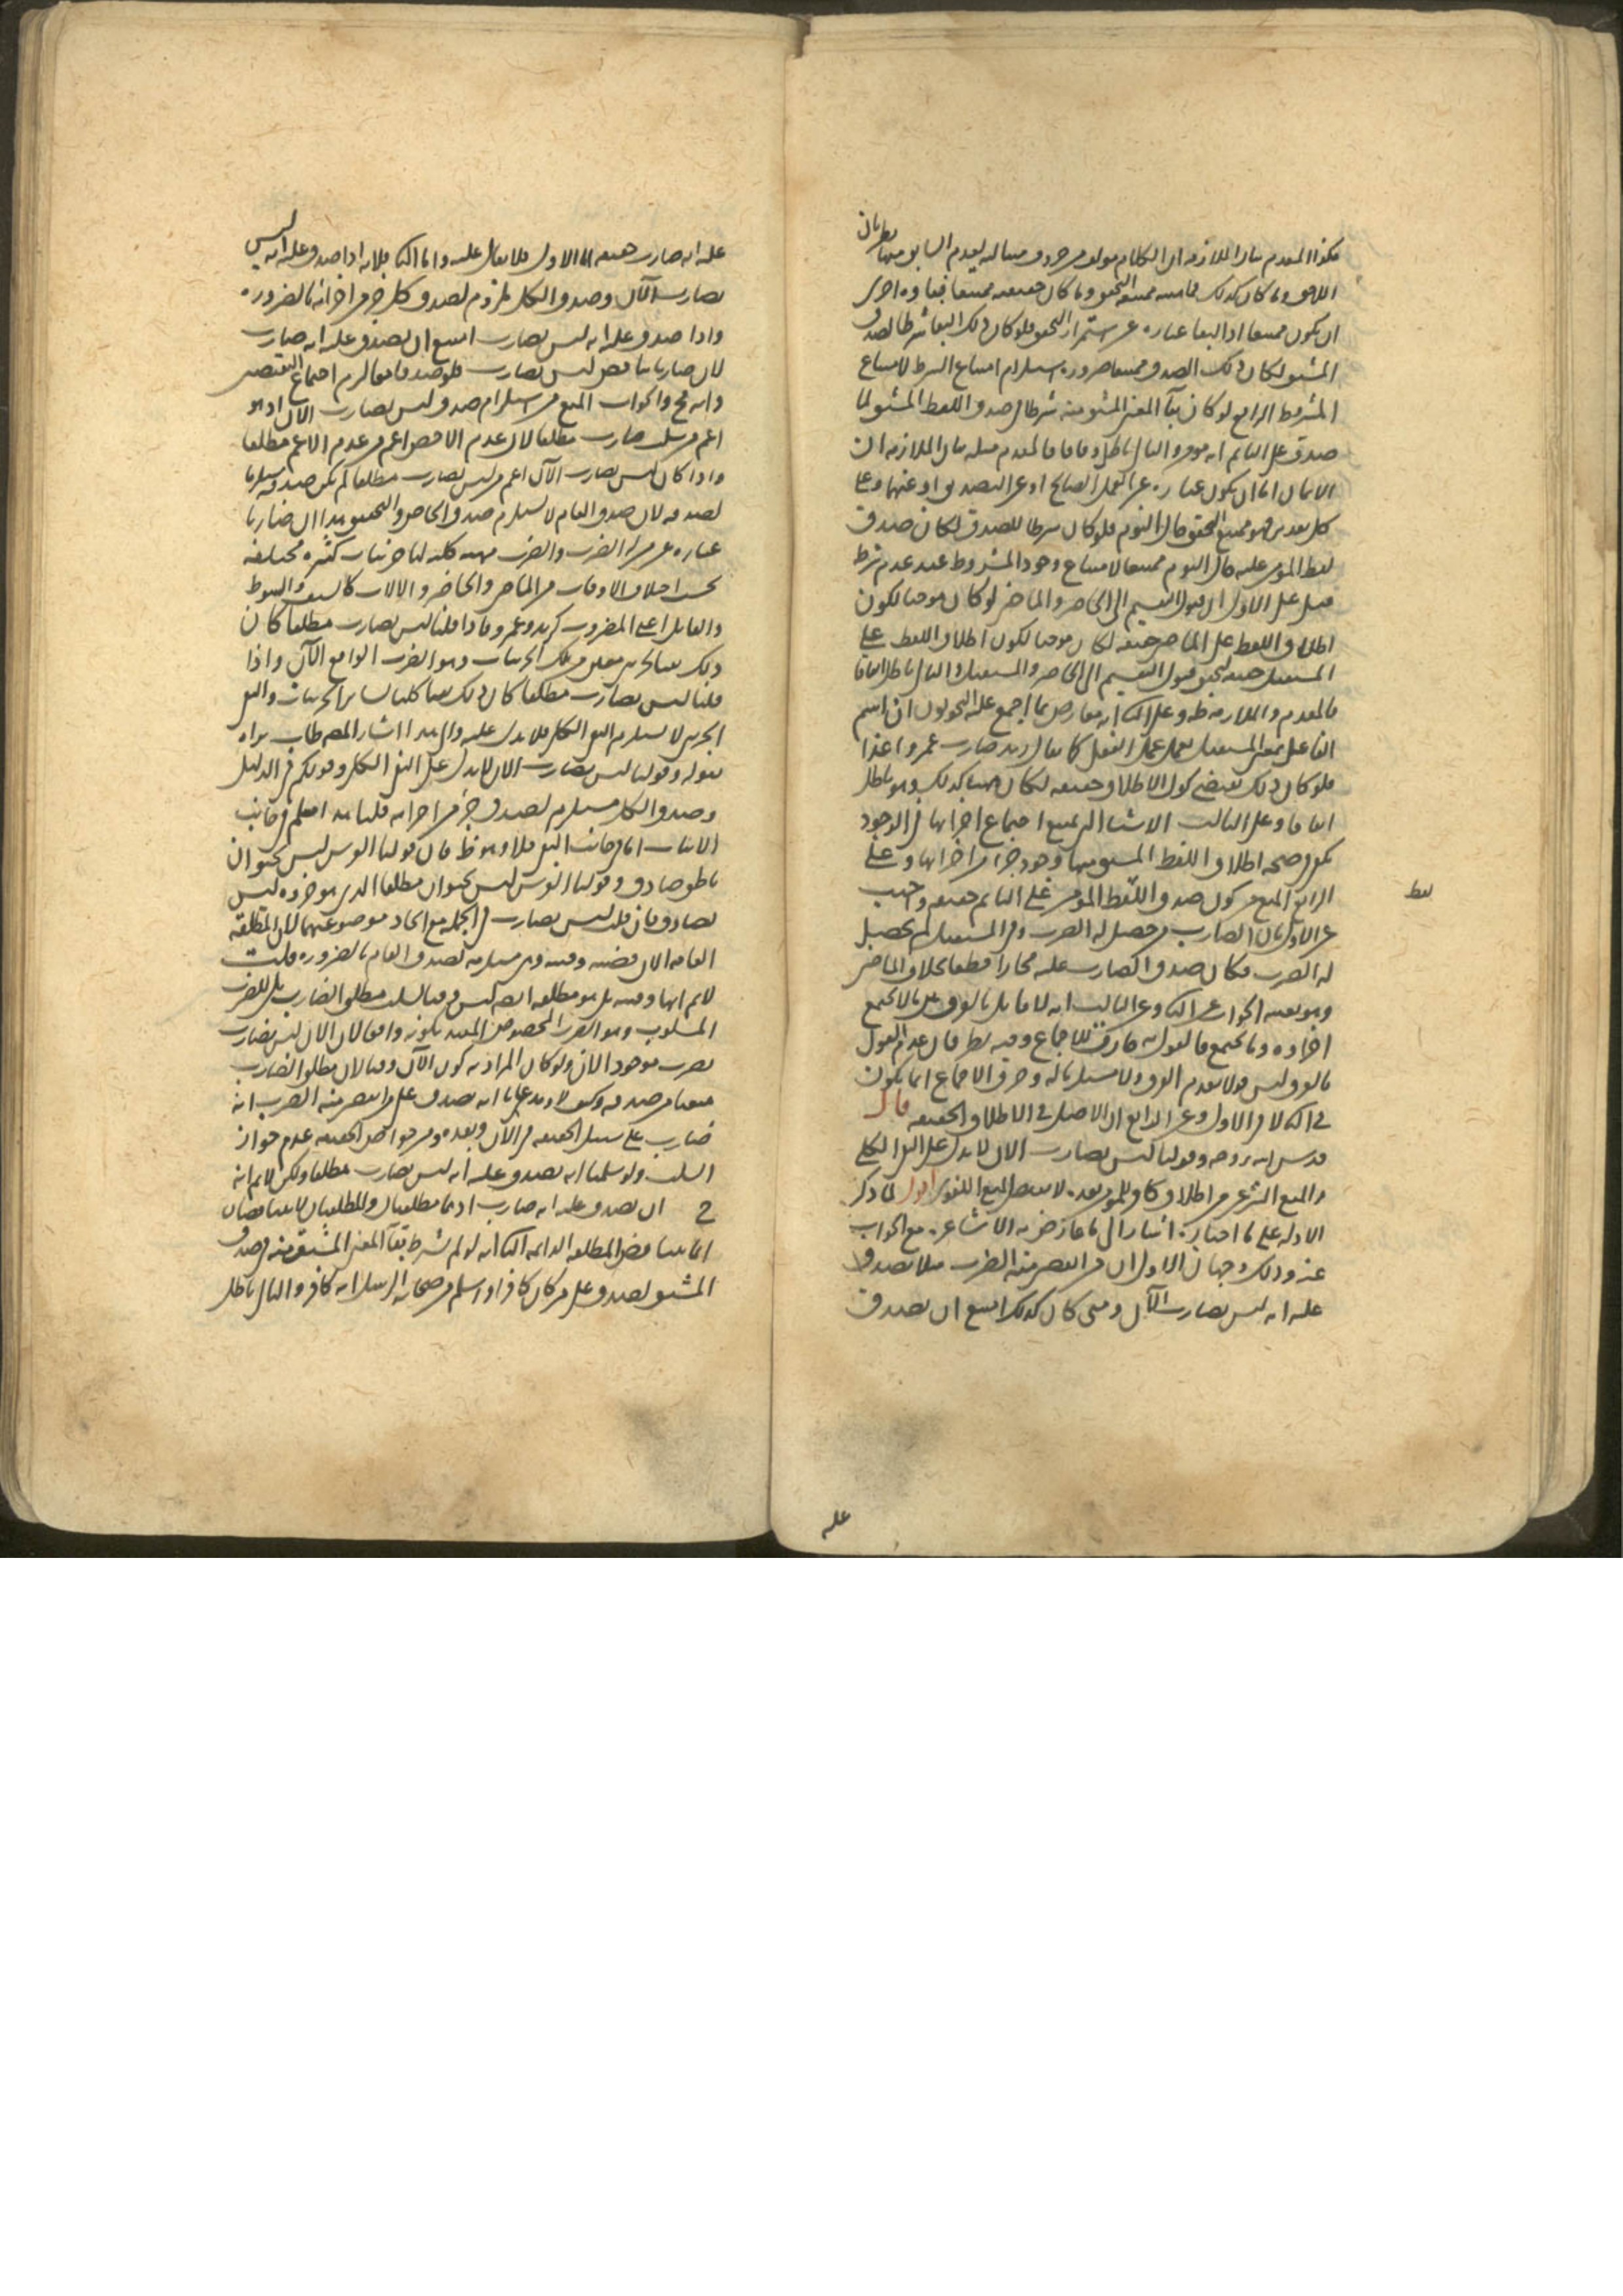 فكذا المقدم بيان الملازمة ان الكلام مولف من حروف متتالية يعدم السابق منها بطريان
اللاحق وما كان كذلك فماهيته ممتنعة التحقق وما كان حقيقته ممتنعا فبقاوه احرى
ان يكون ممتنعا اذ البقا عبارة عن استمرار التحقق فلو كان ذلك البقا شرطا لصدق
المشتق لكان ذلك الصدق ممتنعا ضرورة استلزام امتناع الشرط لامتناع
المشروط الرابع لو كان بقآ المعنى المشتق منه شرطا في صدق اللفظ المشتق لما
صدق على النايم انه مومن والتالي باطل وفاقا فالمقدم مثله بيان الملازمة ان
الايمان اما ان يكون عبارة عن العمل الصالح او عن التصديق او عنهما وعلى
كل تقدير فهو ممتنع التحقق حال النوم فلو كان شرطا للصدق لكان صدق
لفظ المومن عليه حال النوم ممتنعا لامتناع وجود المشروط عند عدم شرطه
قيل على الاول ان قبول التقسيم الى الحاضر والماضي لو كان موجبا لكون
اطلاق اللفظ على الماضي حقيقة لكان موجبا لكون اطلاق اللفظ على
المستقبل حقيقة لتحقق قبول التقسيم الى الحاضر والمستقبل والتالي باطل اتفاقا
فالمقدم والملازمة ظه وعلى الثاني انه معارض بما اجمع عليه النحويون ان اسم
الفاعل بمعنى المستقبل يعمل عمل الفعل كما يقال زيد ضارب عمرو اغدا
فلو كان ذلك يقتضي كون الاطلاق حقيقة لكان ههنا كذلك وهو باطل
اتفاقا وعلى الثالث الاشيا التي يمتنع اجتماع اجزائها في الوجود
يكفي في صحة اطلاق اللفظ المشتق منها وجود جزء من اجزائها وعلى
الرابع المنع من كون صدق اللفظ المومن على النايم حقيقة واجيب
عن الاول بان الضارب من حصل له الضرب وفي المستقبل لم يحصل
له الضرب فكان صدق الضارب عليه مجازا قطعا بخلاف الماضي
وهو بعينه الجواب عن الثاني وعن الثالث انه لا قايل بالفرق بين ما لا تجتمع
اجزاوه وما تجتمع فالقول به خارق للاجماع وفيه نظر فان عدم القول
بالفرق ليس قولا بعدم الفرق ولا مستلزما له وخرق الاجماع انما يكون
في الثاني لا في الاول وعن الرابع ان الاصل في الاطلاق الحقيقة قال
قدس الله روحه وقولنا ليس بضارب الان لا يدل على النفي الكلي
والمنع الشرعي من اطلاق كافر للمومن بعده لا يقتضي المنع اللغوي اقول لما ذكر
الادلة على ما اختاره اشار الى ما عارض به الاشاعرة مع الجواب
عنه وذلك وجهان الاول ان من انقضى منه الضرب مثلا يصدق
عليه انه ليس بضارب الآن ومتى كان كذلك امتنع ان يصدق
لفظ
عليه
عليه انه ضارب حقيقة اما الاول فلا يقال عليه واما الثاني فلانه اذا صدق عليه انه ليس
بضارب الآن وصدق الكل ملزوم لصدق كل جزء من اجزائه بالضرورة
واذا صدق عليه انه ليس بضارب امتنع ان يصدق عليه انه ضارب
لان ضاربا يناقض ليس بضارب فلو صدقا معا لزم اجتماع النقيضين
وانه مح والجواب المنع من استلزام صدق ليس بضارب الآن اذ هو
اعم من سلب ضارب مطلقا لان عدم الاخص اعم من عدم الاعم مطلقا
واذا كان ليس بضارب الآن اعم من ليس بضارب مطلقا لم يكن صدقه مستلزما
لصدقه لان صدق العام لا يستلزم صدق الخاص والتحقيق هذا ان ضاربا
عبارة عن من له الضرب والضرب مهية كلية لها جزئيات كثيرة مختلفة
بحسب اختلاف الاوقات من الماضي والحاضر والالات كالسيف والسوط
والقابل اعني المضروب كزيد وعمرو فاذا قلنا ليس بضارب مطلقا كان
ذلك نفيا لجزئي معين من تلك الجزئيات وهو الضرب الواقع الآن واذا
قلنا ليس بضارب مطلقا كان ذلك نفيا كليا لساير الجزئيات والنفي
الجزئي لا يستلزم النفي الكلي فلا يدل عليه والى هذا اشار المص طاب ثراه
بقوله وقولنا ليس بضارب الان لا يدل على النفي الكلي وقولكم في الدليل
وصدق الكل مستلزم لصدق جزء من اجزائه قلنا هذا مسلم في جانب
الاثبات اما في جانب النفي فلا وهو ظ فان قولنا الفرس ليس بحيوان
ناطق صادق وقولنا الفرس ليس بحيوان مطلقا الذي هو جزوه ليس
بصادق فان قلت ليس بضارب في الجملة مع اتحاد موضوعيهما لان المطلقة
العامة الان قضية وقتية وهي مستلزمة لصدق العام بالضرورة قلت
لانم انها وقتية بل هو مطلقة اذ ليس فيها سلب مطلق الضارب بل للضرب
المسلوب وهو الضرب المخصوص المقيد بكونه واقعا الان لان ليس بضارب
بضرب موجود الان ولو كان المراد به كون الآن وقتا لان مطلق الضارب
منعنا من صدقه وكيف لا وندعي انه يصدق على من انقضى منه الضرب انه
ضارب على سبيل الحقيقة في الآن وبعده ومن خواص الحقيقة عدم جواز
السلب ولو سلمنا انه يصدق عليه انه ليس بضارب مطلقا ولكن لانم انه
ح ان يصدق عليه انه ضارب اذ هما مطلقتان والمطلقتان لا يتناقضان
انما يناقض المطلقة الدائمة الثاني انه لو لم يشترط بقآ المعنى المشتق منه في صدق
المشتق لصدق على من كان كافرا واسلم من صحابة الرسل انه كافر والتالي باطل